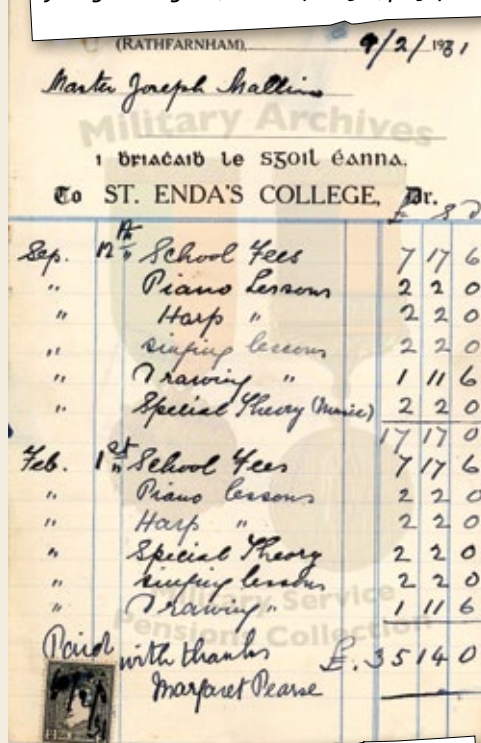 (RATHFARNHAM), 9/2/1931
Master Joseph Mallin
Military Archives
1 bfiacaib le Sgoil Éanna.
To ST. ENDA'S COLLEGE, Dr.
£ S D
Sep. 12th School Fees 7 17 6
" Piano Lessons 2 2 0
" Harp " 2 2 0
" singing lessons 2 2 0
" Drawing " 1 11 6
" Special Theory (Music) 2 2 0
17 17 0
Feb. 1st School Fees 7 17 6
" Piano lessons 2 2 0
" Harp " 2 2 0
" Special Theory 2 2 0
" singing lessons 2 2 0
" Drawing " 1 11 6
Military Service
Pensions Collection
Paid with thanks £. 35 14 0
Margaret Pearse